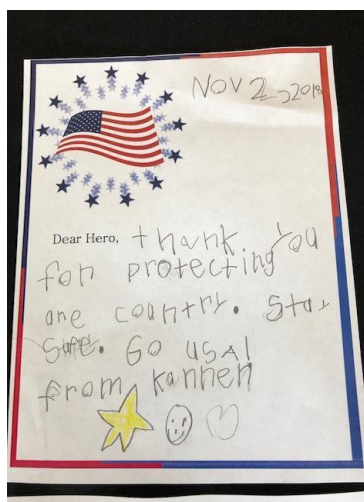 Nov 2, 2018
Dear Hero, thank you
for protecting
are country. Stay
safe. Go USA!
from, kannen